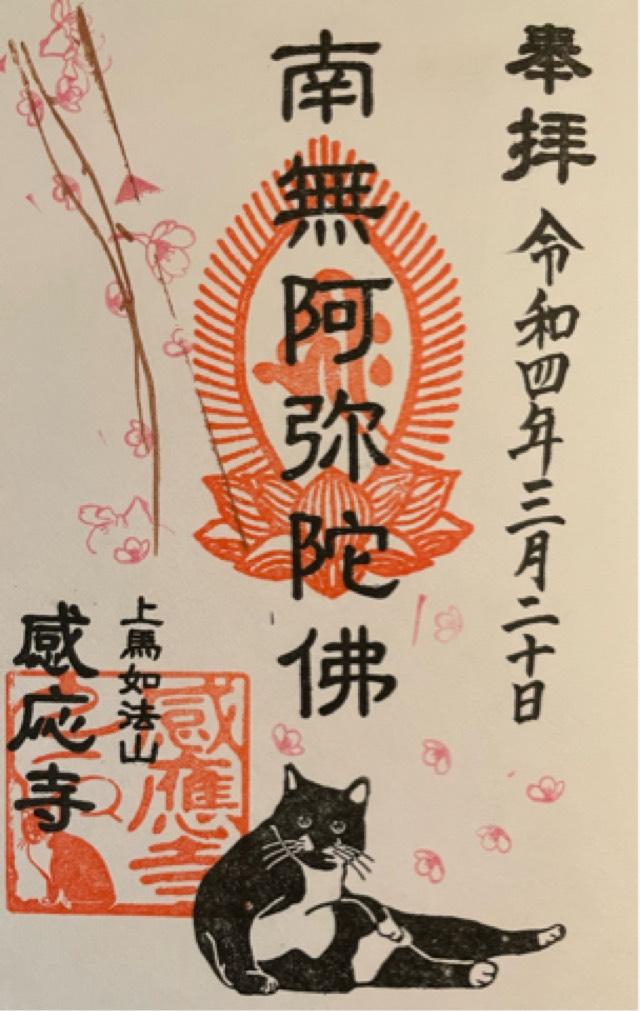 奉拝 令和四年三月二十日
南無阿弥陀佛
上馬如法山
感応寺
感應寺